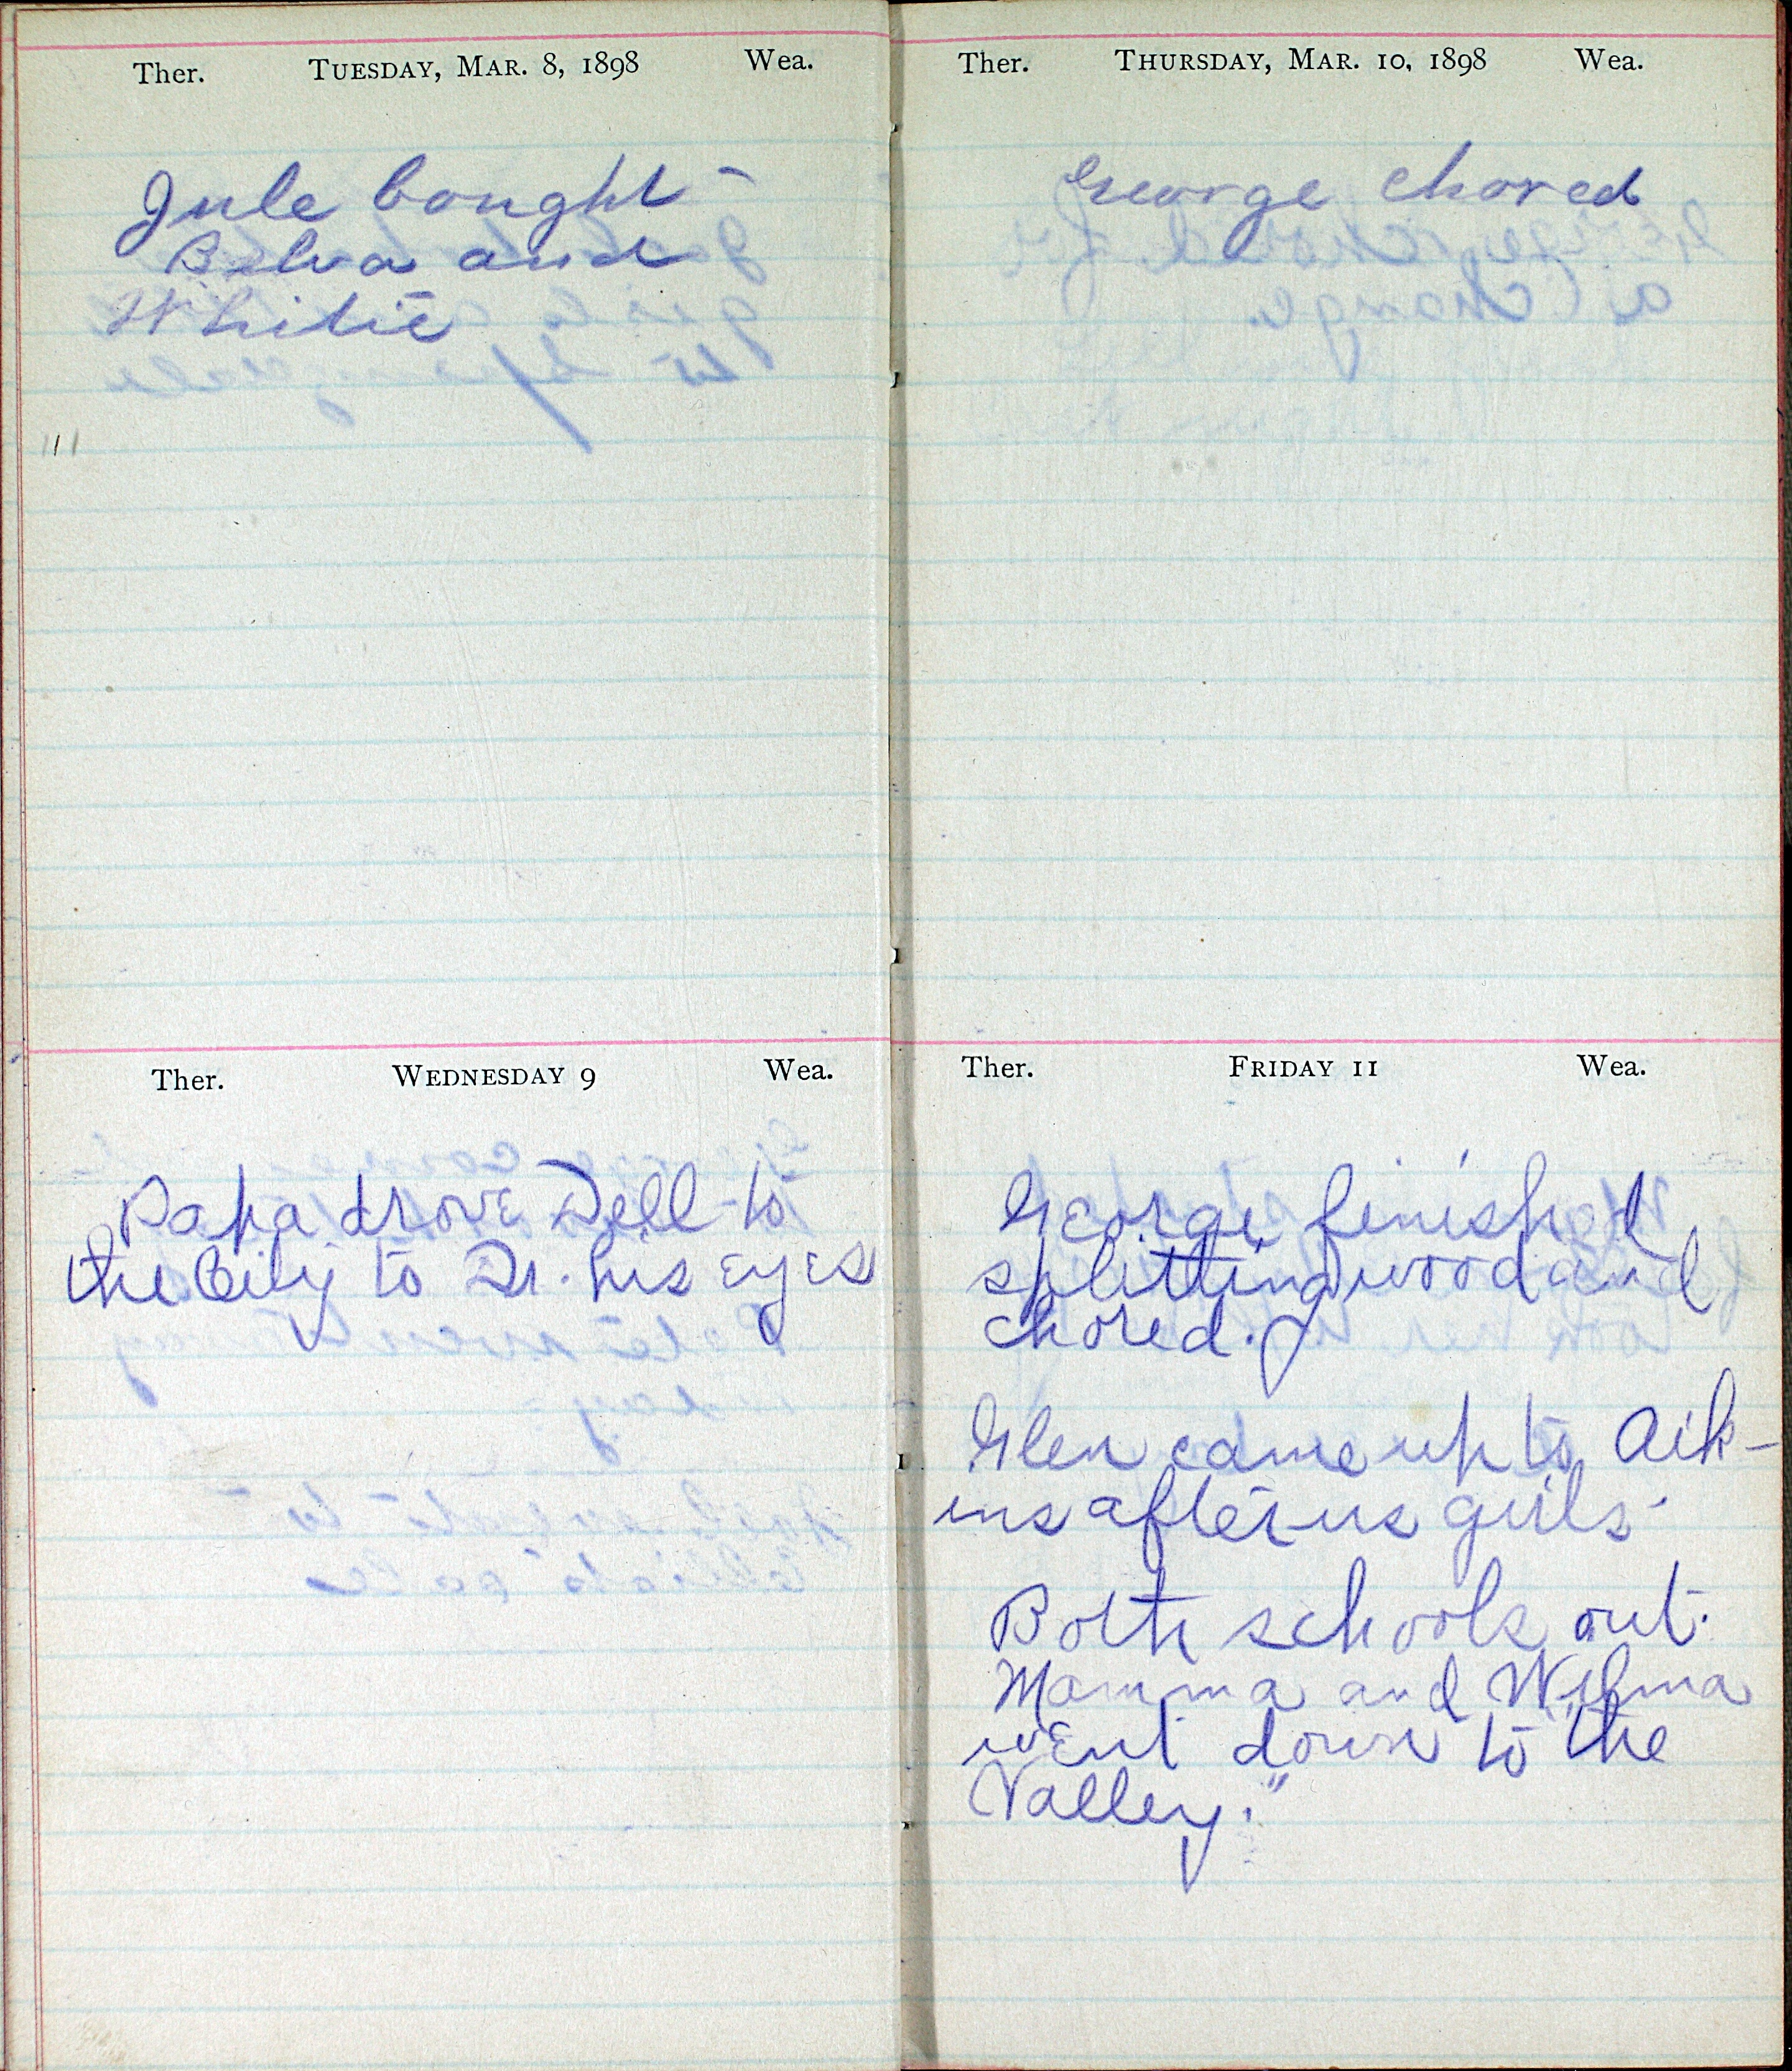 Ther. TUESDAY, MAR. 8, 1898 Wea.
Jule bought
Belva and
Whitie
Ther. WEDNESDAY 9 Wea.
Papa drove Dell to
the City to Dr. his eyes
Ther. THURSDAY, MAR. 10, 1898 Wea.
George chored
Ther. FRIDAY 11 Wea.
George finished
splitting wood and
chored.
Glen came up to Aik-
ins after us girls.
Both schools out.
Mamma and Wilma
went down to the
Valley."